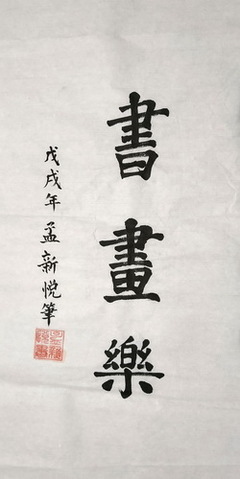 書畫樂
戊戌年孟新悦筆